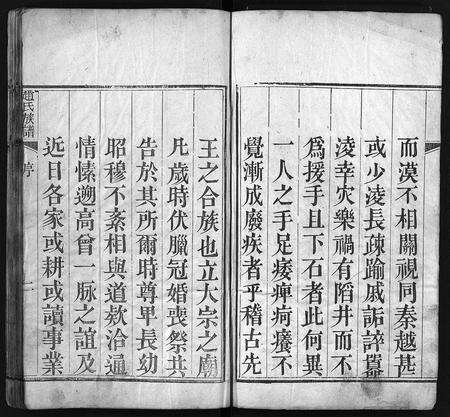 而漠不相關視同秦越甚
或少淩長疎踰戚詬誶囂
淩幸灾樂禍有䧟井而不
爲援手且下石者此何異
一人之手足痿痺疴癢不
覺漸成廢疾者乎稽古先
王之合族也立大宗之廟
凡歲時伏臘冠婚喪祭共
告於其所爾時尊卑長幼
昭穆不紊相與道欵洽通
情愫遡高曾一脉之誼及
近日各家或耕或讀事業
趙氏族譜
序
一